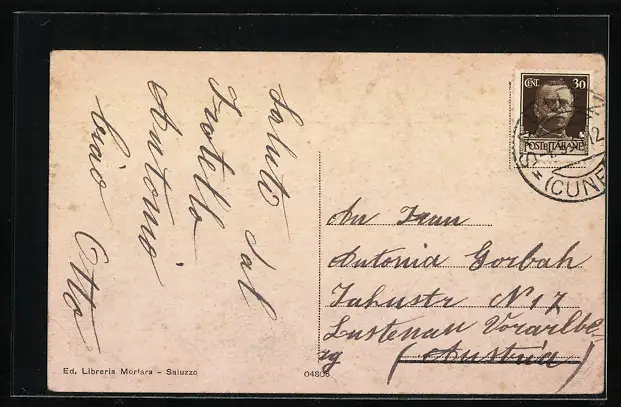 Saluto dal
Fratello
Antonio
Ciao Otto
CENT. 30
POSTE ITALIANE
(CUNE
An Frau
Antonia Gorbah
Jahnstr N 17
Lustenau Vorarlbe
rg (Austria)
Ed. Libreria Mortara - Saluzzo